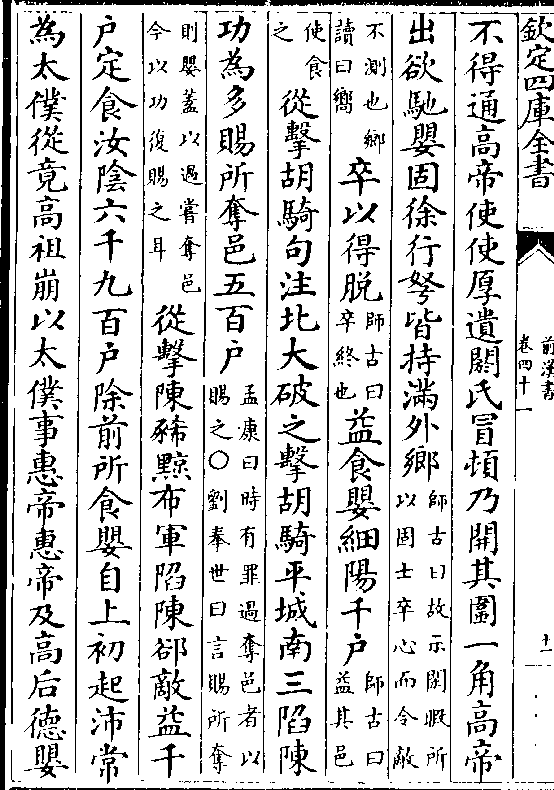 欽定四庫全書
前漢書
卷四十一
十一
不得通高帝使使厚遺閼氏冒頓乃開其圍一角高帝
出欲馳嬰固徐行弩皆持滿外鄉師古曰故示閑暇所以固士卒心而令敵
不測也鄉讀曰嚮卒以得脫師古曰卒終也益食嬰細陽千户師古曰益其邑
使食之從擊胡騎句注北大破之擊胡騎平城南三陷陳
功為多賜所奪邑五百户孟康曰時有罪過奪邑者以賜之○劉奉世曰言賜所奪
則嬰蓋以過嘗奪邑今以功復賜之耳從擊陳豨黥布軍陷陳郤敵益千
户定食汝陰六千九百户除前所食嬰自上初起沛常
為太僕從竟高祖崩以太僕事惠帝惠帝及高后德嬰